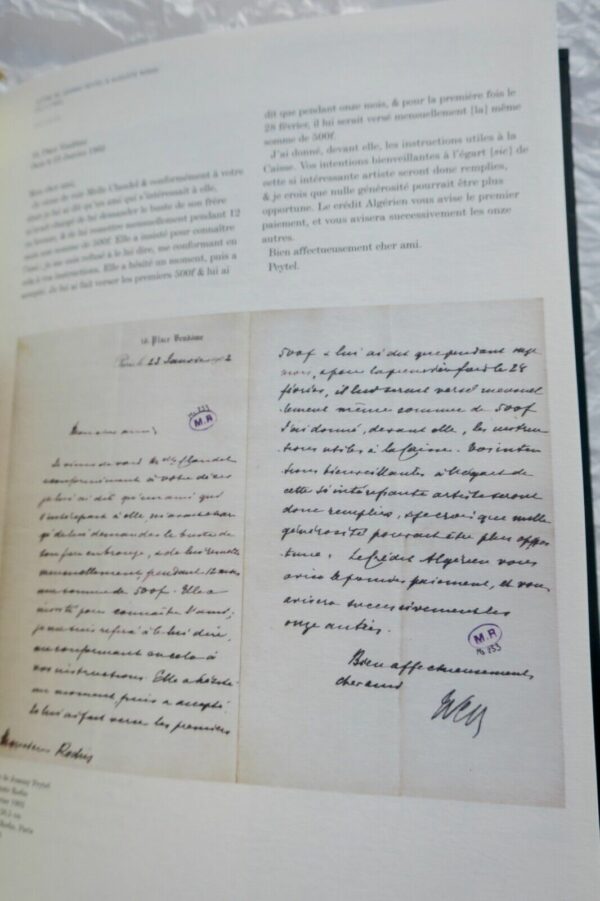 18 Place Vendôme
Mon cher ami,
Je viens de voir Melle Claudel & conformément à votre
désir je lui ai dit qu'un ami qui s'intéressait à elle,
m'avait chargé de lui demander le buste de son frère
en bronze, & de lui remettre mensuellement pendant 12
mois une somme de 500f. Elle a insisté pour connaître
l'ami ; je me suis refusé à le lui dire, me conformant en
cela à vos instructions. Elle a hésité un moment, puis a
accepté. Je lui ai fait verser les premiers 500f & lui ai
dit que pendant onze mois, & pour la première fois le
28 février, il lui serait versé mensuellement [la] même
somme de 500f.
J'ai donné, devant elle, les instructions utiles à la
Caisse. Vos intentions bienveillantes à l'égart [sic] de
cette si intéressante artiste seront donc remplies,
& je crois que nulle générosité pourrait être plus
opportune. Le crédit Algérien vous avise le premier
paiement, et vous avisera successivement les onze
autres.
Bien affectueusement cher ami.
Peytel.
18, Place Vendôme
Paris le 23 Janvier
Ms 233
M.R
Mon cher ami,
Je viens de voir Melle Claudel
conformément à votre désir
je lui ai dit qu'un ami qui
s'intéressait à elle, m'avait char
gé de lui demander le buste de
son frère en bronze, & de lui remettre
mensuellement, pendant 12 mois
une somme de 500f. Elle a
insisté pour connaître l'ami ;
je me suis refusé à le lui dire,
me conformant en cela à
vos instructions. Elle a hésité
un moment, puis a accepté.
Je lui ai fait verser les premiers
Rodin
500f & lui ai dit que pendant onze
mois, & pour la première fois le 28
février, il lui serait versé mensuel
lement même somme de 500f
J'ai donné, devant elle, les instruc
tions utiles à la Caisse. Vos inten
tions bienveillantes à l'égart de
cette si intéressante artiste seront
donc remplies, & je crois que nulle
générosité pourrait être plus oppor
tune. Le Crédit Algérien vous
avise le premier paiement, et vous
avisera successivement les
onze autres.
M.R
Ms 233
Bien affectueusement
cher ami
de Joanny Peytel
Rodin
1902
Rodin, Paris